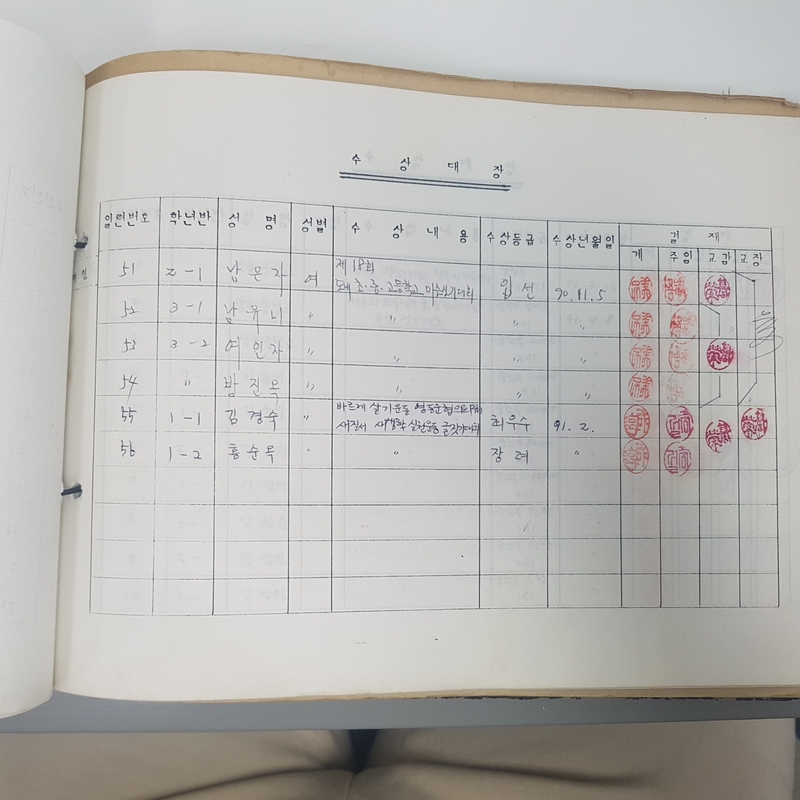 수 상 대 장
일련번호 학년반 성 명 성별 수 상 내 용 수상등급 수상년월일 결 재
계 주임 교감 교장
51 2-1 남은자 여 제18회
초·중·고등학교 미술실기대회 입선 90.11.5
52 3-1 남유니 〃 〃 〃 〃
53 3-2 여인자 〃 〃 〃 〃
54 〃 방진옥 〃 〃 〃 〃
55 1-1 김경숙 〃 바르게 살기운동
새질서 새생활 실천운동 글짓기대회 최우수 91.2.
56 1-2 홍순옥 〃 〃 장려 〃